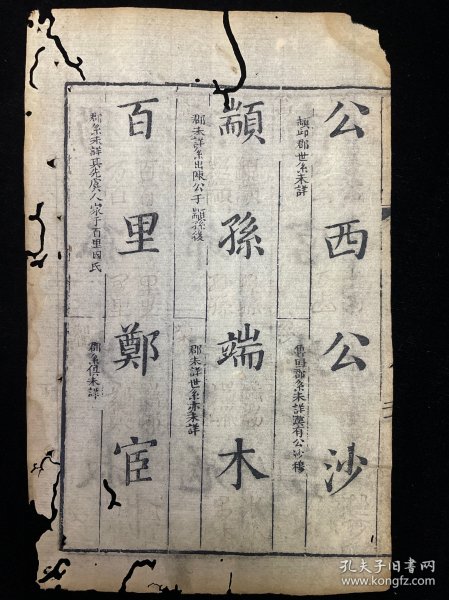 公西公沙
頓邱郡世系未詳
魯國郡系未詳漢有公沙穆
顓孫端木
郡未詳系出陳公子顓孫後
郡未詳世系亦未詳
百里鄭宦
郡系未詳其先虞人家于百里因氏
郡系俱未詳
孔夫子旧书网
www.kongfz.com